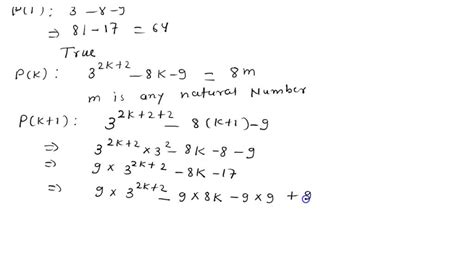 P(1): 3 - 8 - 9
⇒ 81 - 17 = 64
True
P(k): 3^{2k+2} - 8k - 9 = 8m
m is any natural Number
P(k+1): 3^{2k+2+2} - 8(k+1) - 9
⇒ 3^{2k+2} × 3^2 - 8k - 8 - 9
⇒ 9 × 3^{2k+2} - 8k - 17
⇒ 9 × 3^{2k+2} - 9 × 8k - 9 × 9 +